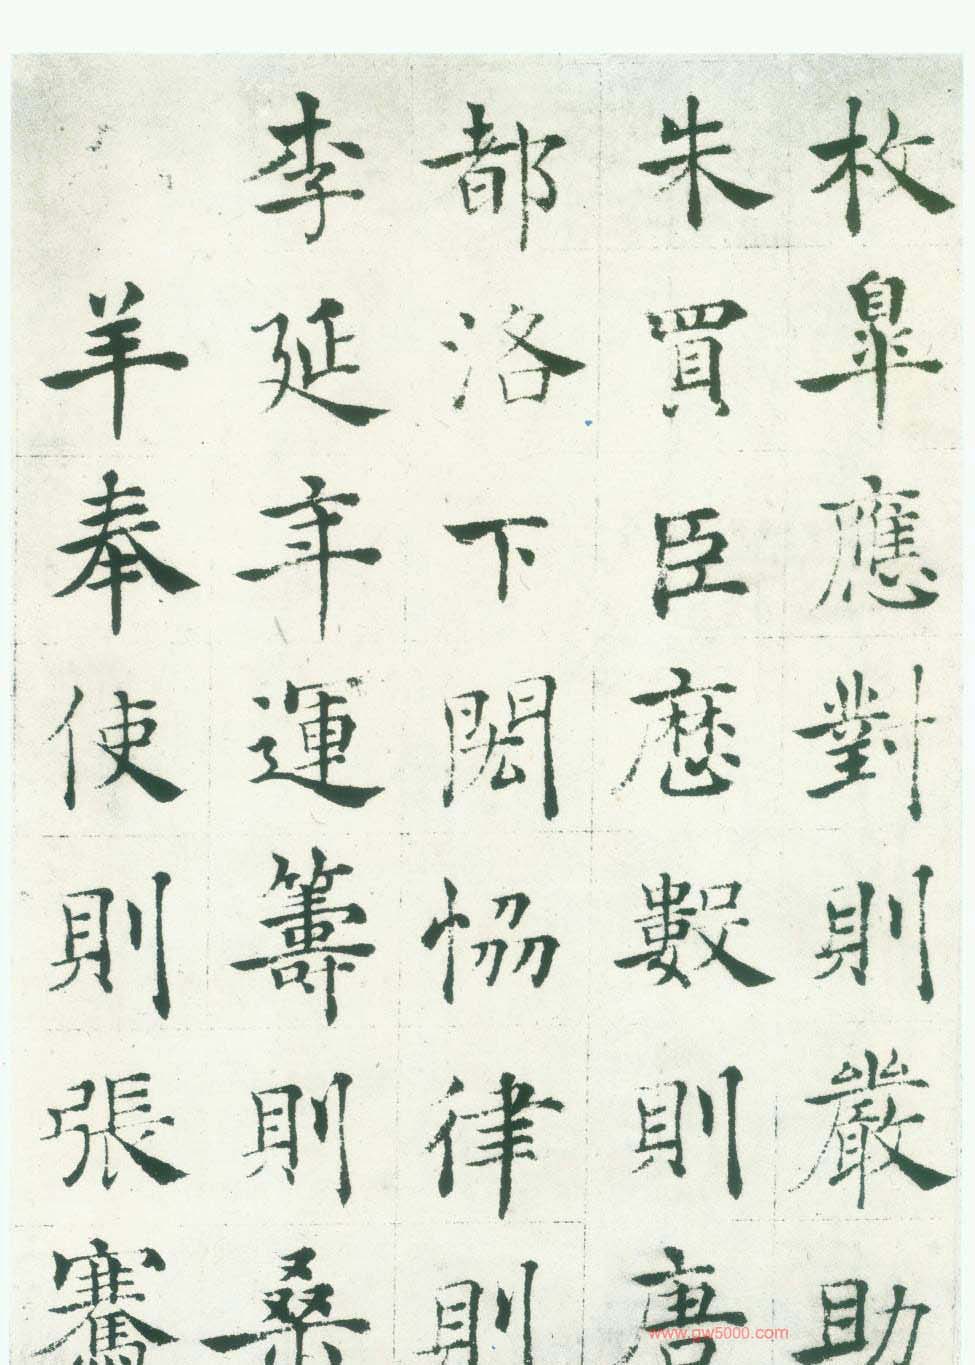 枚皐應對則嚴助
朱買臣厯數則唐
都洛下閎恊律則
李延年運籌則桑
羊奉使則張騫
www.gw5000.com